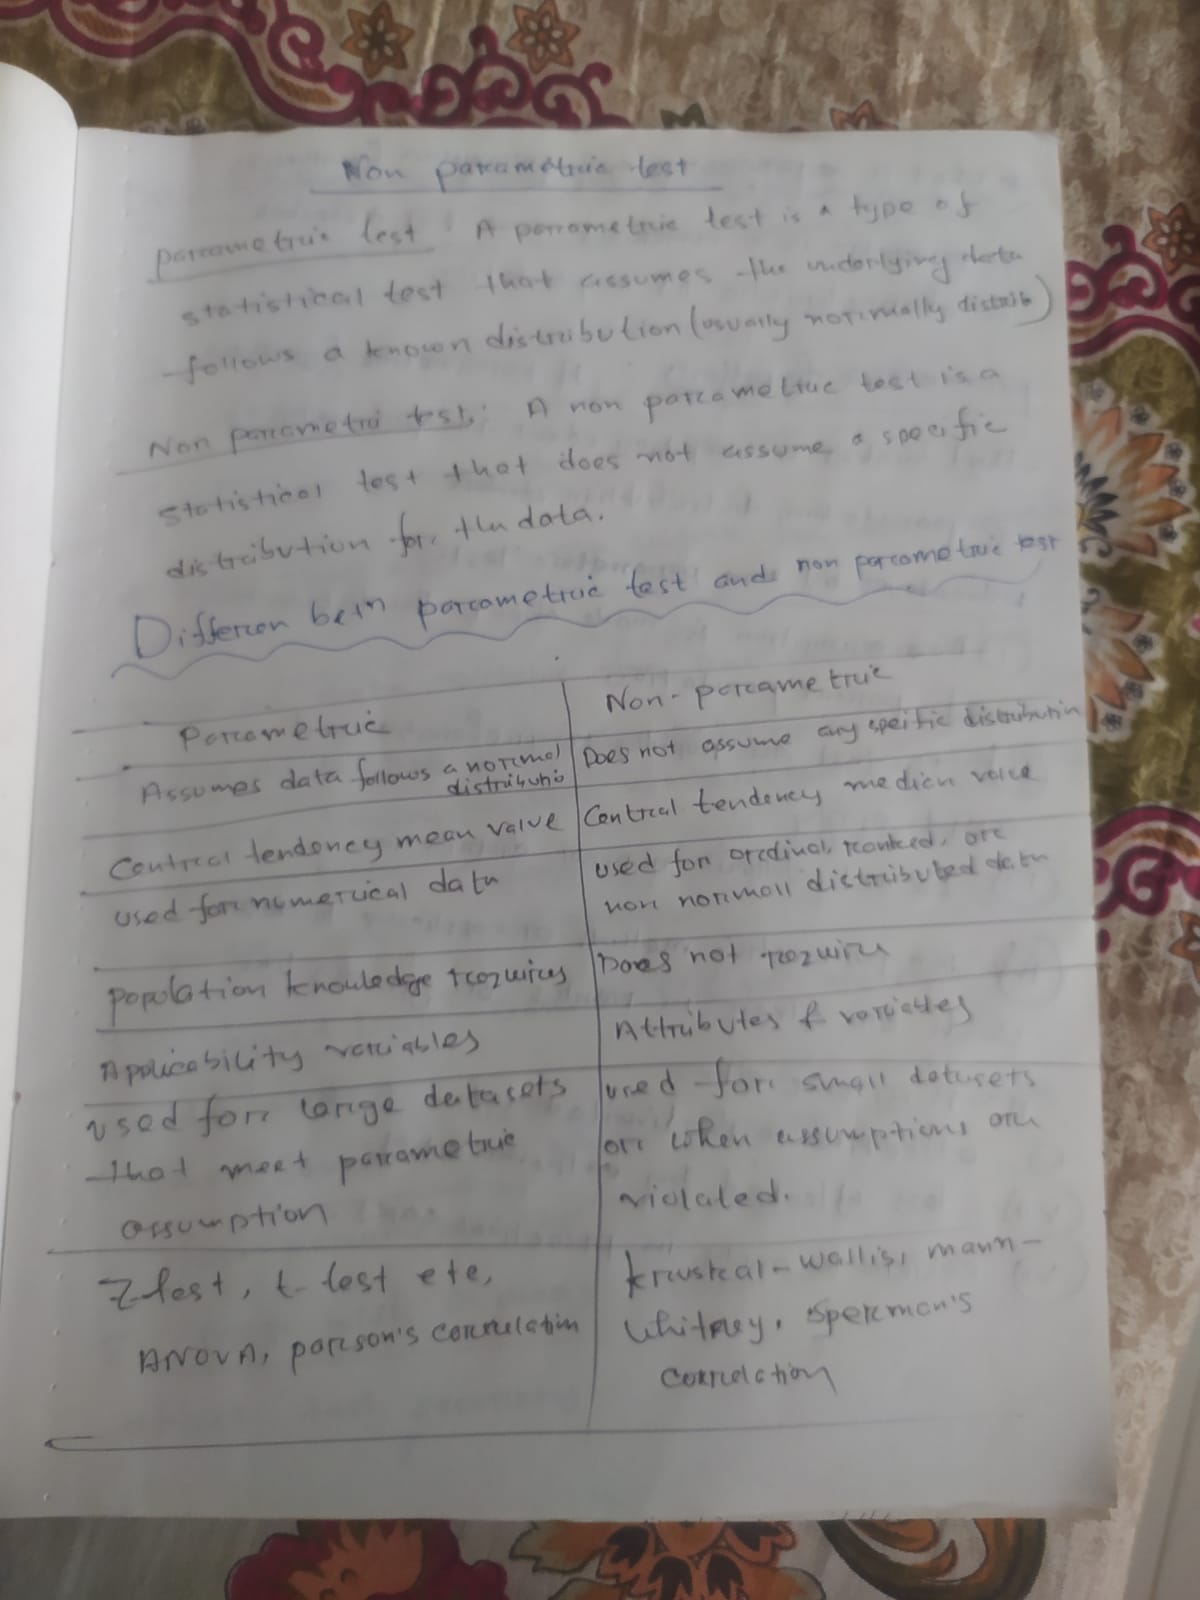 Non parametric test
parametric test : A parametric test is a type of
statistical test that assumes the underlying data
follows a known distribution (usually normally distrib)
Non parametri test: A non parametric test is a
statistical test that does not assume a specific
distribution for the data.
Differen betn parametric test and non parametric test
Parametric
Non-parametric
Assumes data follows a normal
distributio
Does not assume any speific distributin
Central tendency mean value
Central tendency median value
used for numerical data
used for ordinal, ranked, or
non normall distributed data
population knowledge requires
Does not require
Applicability variables
Attributes & variables
used for large datasets
that meet parametric
assumption
used for small datasets
or when assumptions are
violated.
Z test, t-test etc,
ANOVA, parson's correlation
kruskal-wallis, mann-
whitney, Sperman's
correlation